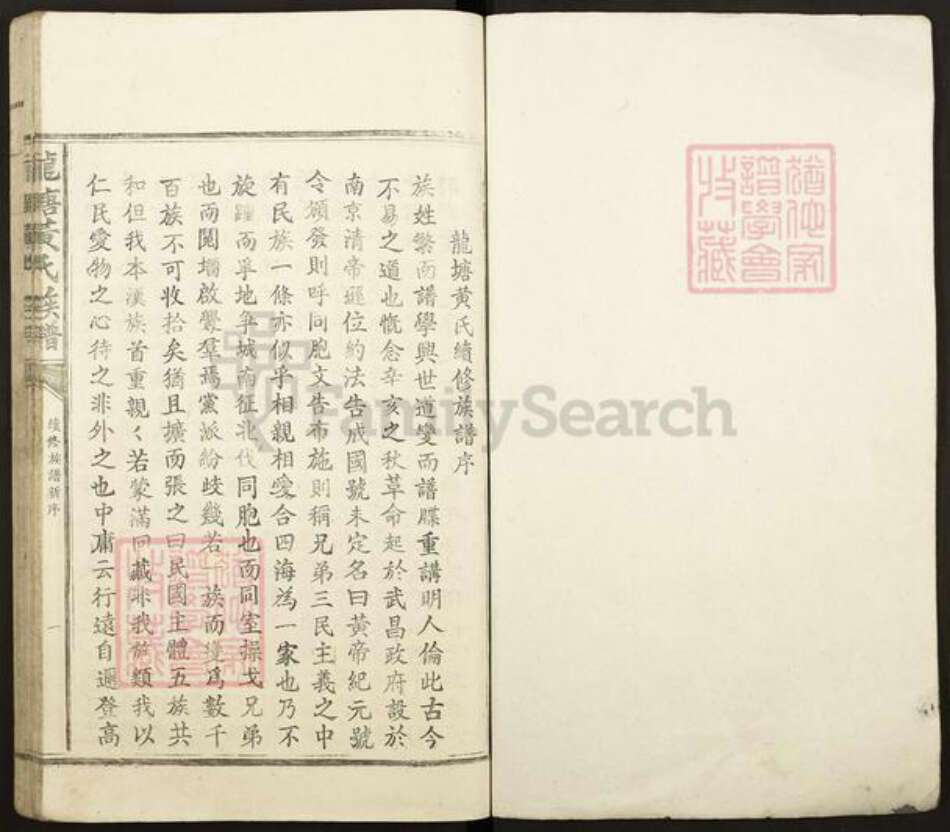 猶他家
譜學會
收藏
龍塘黃氏續修族譜序
族姓繁而譜學興世道變而譜牒重講明人倫此古今
不易之道也慨念辛亥之秋革命起於武昌政府設於
南京清帝遜位約法告成國號未定名曰黃帝紀元號
令頒發則呼同胞文告布施則稱兄弟三民主義之中
有民族一條亦似乎相親相愛合四海為一家也乃不
旋踵而爭地爭城南征北伐同胞也而同室操戈兄弟
也而鬩墻啟釁羣焉黨派紛歧幾若一族而變為數千
百族不可收拾矣猶且擴而張之曰民國主體五族共
和但我本漢族首重親〻若蒙滿回藏非我族類我以
仁民愛物之心待之非外之也中庸云行遠自邇登高
龍塘黃氏族譜
續修族譜新序
一
FamilySearch